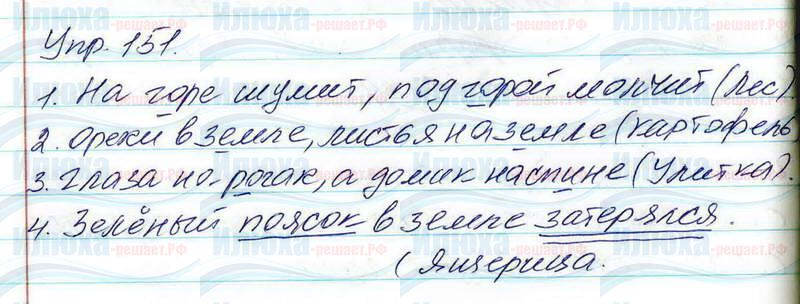 Упр. 151.
1. На горе шумит, под горой молчит (лес).
2. Орехи в земле, листья на земле (картофель)
3. Глаза на рогах, а домик на спине (Улитка).
4. Зелёный поясок в земле затерялся.
(Ящерица.